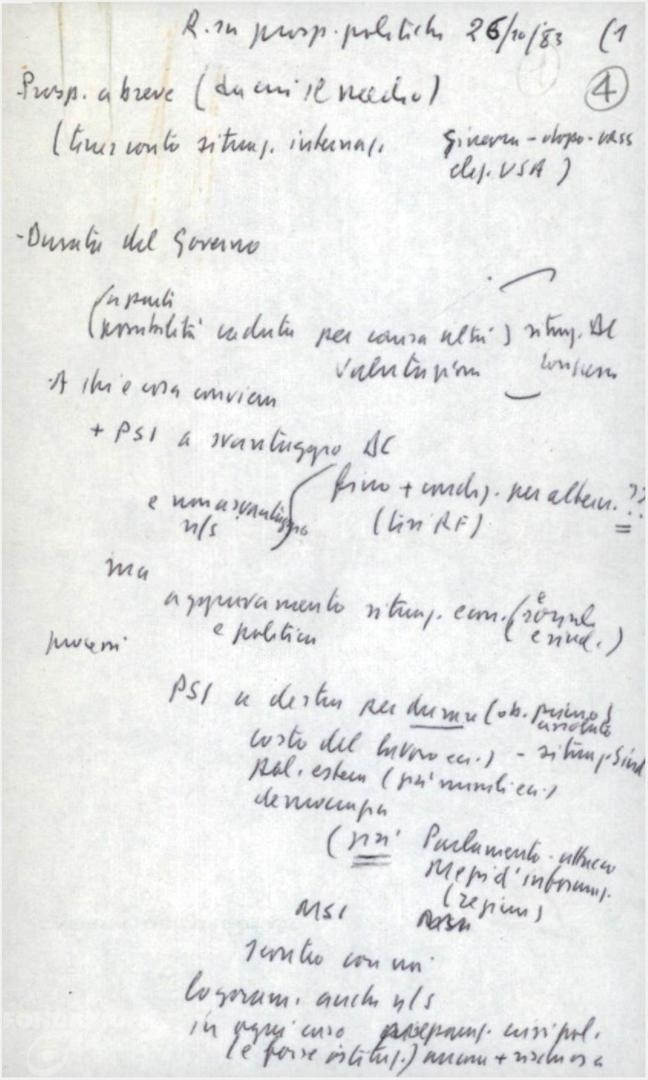 R. su prosp. politiche 26/10/83 (1
4
- Prosp. a breve (da cui il medio)
(tener conto situaz. internaz. Ginevra - dopo -
elez. USA)
- Durata del Governo
a parti
(possibilità caduta per causa altri) situaz. DC
Valutazioni
- A chi e cosa conviene
+ PSI a svantaggio DC
e non a svantaggio n/s
fino + condiz. per altern. ??
(tesi RF)
ma
aggravamento situaz. econ. (sociale
e politica e sind.)
PSI a destra per durare (ob. primo)
costo del lavoro ecc.) - situaz. Sind
Pol. estera (già missili ecc.)
democrazia
(già Parlamento - attacco
Mezzi d'informaz.
(regioni)
MSI
scontro con noi
logoram. anche n/s
in ogni caso crisi pol.
(e forse istituz.) ancora + rischiosa